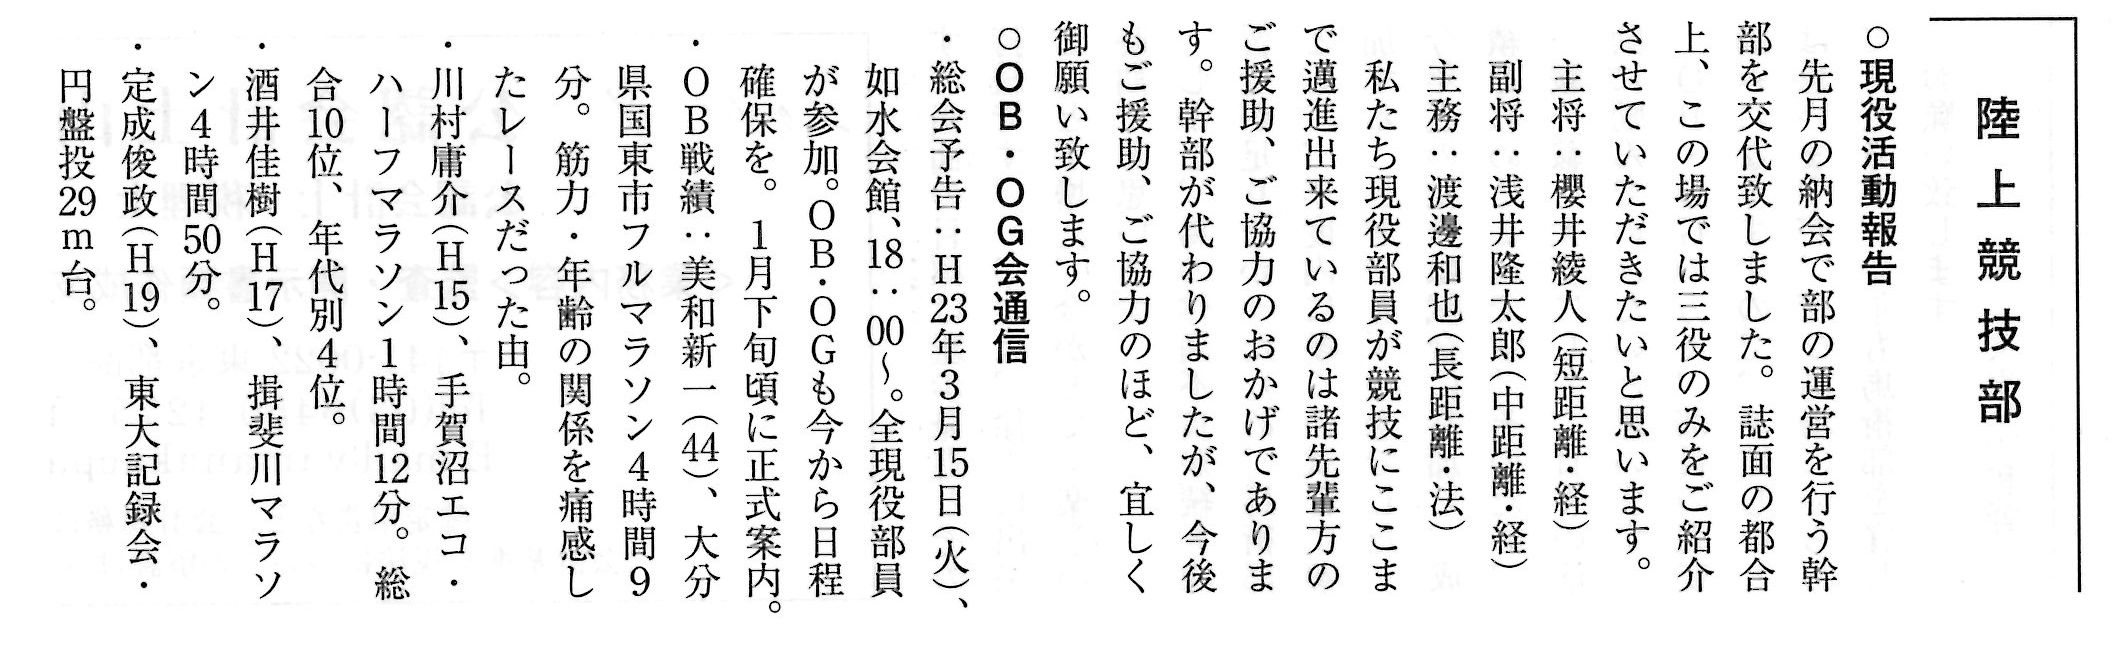 陸上競技部
○現役活動報告
先月の納会で部の運営を行う幹
部を交代致しました。誌面の都合
上、この場では三役のみをご紹介
させていただきたいと思います。
主将：櫻井綾人（短距離・経）
副将：浅井隆太郎（中距離・経）
主務：渡邊和也（長距離・法）
私たち現役部員が競技にここま
で邁進出来ているのは諸先輩方の
ご援助、ご協力のおかげでありま
す。幹部が代わりましたが、今後
もご援助、ご協力のほど、宜しく
御願い致します。
○ＯＢ・ＯＧ会通信
・総会予告：Ｈ23年３月15日（火）、
如水会館、18：00～。全現役部員
が参加。ＯＢ・ＯＧも今から日程
確保を。１月下旬頃に正式案内。
・ＯＢ戦績：美和新一（44）、大分
県国東市フルマラソン４時間９
分。筋力・年齢の関係を痛感し
たレースだった由。
・川村庸介（Ｈ15）、手賀沼エコ・
ハーフマラソン１時間12分。総
合10位、年代別４位。
・酒井佳樹（Ｈ17）、揖斐川マラソ
ン４時間50分。
・定成俊政（Ｈ19）、東大記録会・
円盤投29ｍ台。